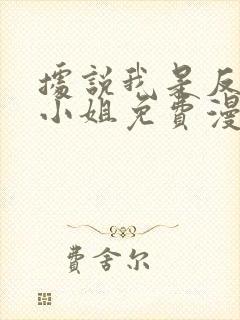 據說我是反
小姐免費漫
費舍尔